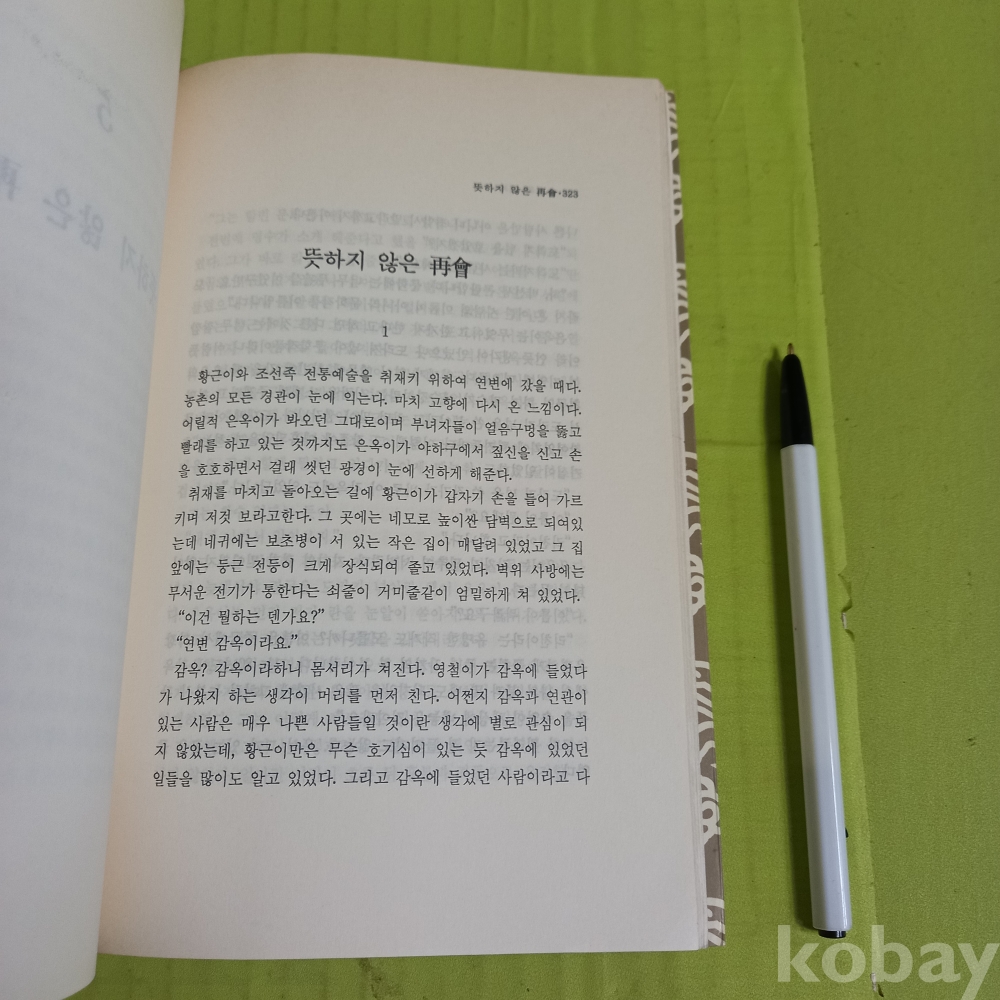 뜻하지 않은 再會·323
뜻하지 않은 再會
1
황근이와 조선족 전통예술을 취재키 위하여 연변에 갔을 때다.
농촌의 모든 경관이 눈에 익는다. 마치 고향에 다시 온 느낌이다.
어릴적 은옥이 봐오던 그대로이며 부녀자들이 얼음구멍을 뚫고
빨래를 하고 있는 것까지도 은옥이가 야하구에서 짚신을 신고 손
을 호호하면서 걸래 씻던 광경이 눈에 선하게 해준다.
취재를 마치고 돌아오는 길에 황근이가 갑자기 손을 들어 가르
키며 저것 보라고한다. 그 곳에는 네모로 높이싼 담벽으로 되여있
는데 네귀에는 보초병이 서 있는 작은 집이 매달려 있었고 그 집
앞에는 둥근 전등이 크게 장식되여 졸고 있었다. 벽위 사방에는
무서운 전기가 통한다는 쇠줄이 거미줄같이 엄밀하게 쳐 있었다.
“이건 뭘하는 덴가요?”
“연변 감옥이라요.”
감옥? 감옥이라하니 몸서리가 쳐진다. 영철이가 감옥에 들었다
가 나왔지 하는 생각이 머리를 먼저 친다. 어쩐지 감옥과 연관이
있는 사람은 매우 나쁜 사람들일 것이란 생각에 별로 관심이 되
지 않았는데, 황근이만은 무슨 호기심이 있는 듯 감옥에 있었던
일들을 많이도 알고 있었다. 그리고 감옥에 들었던 사람이라고 다
kobay